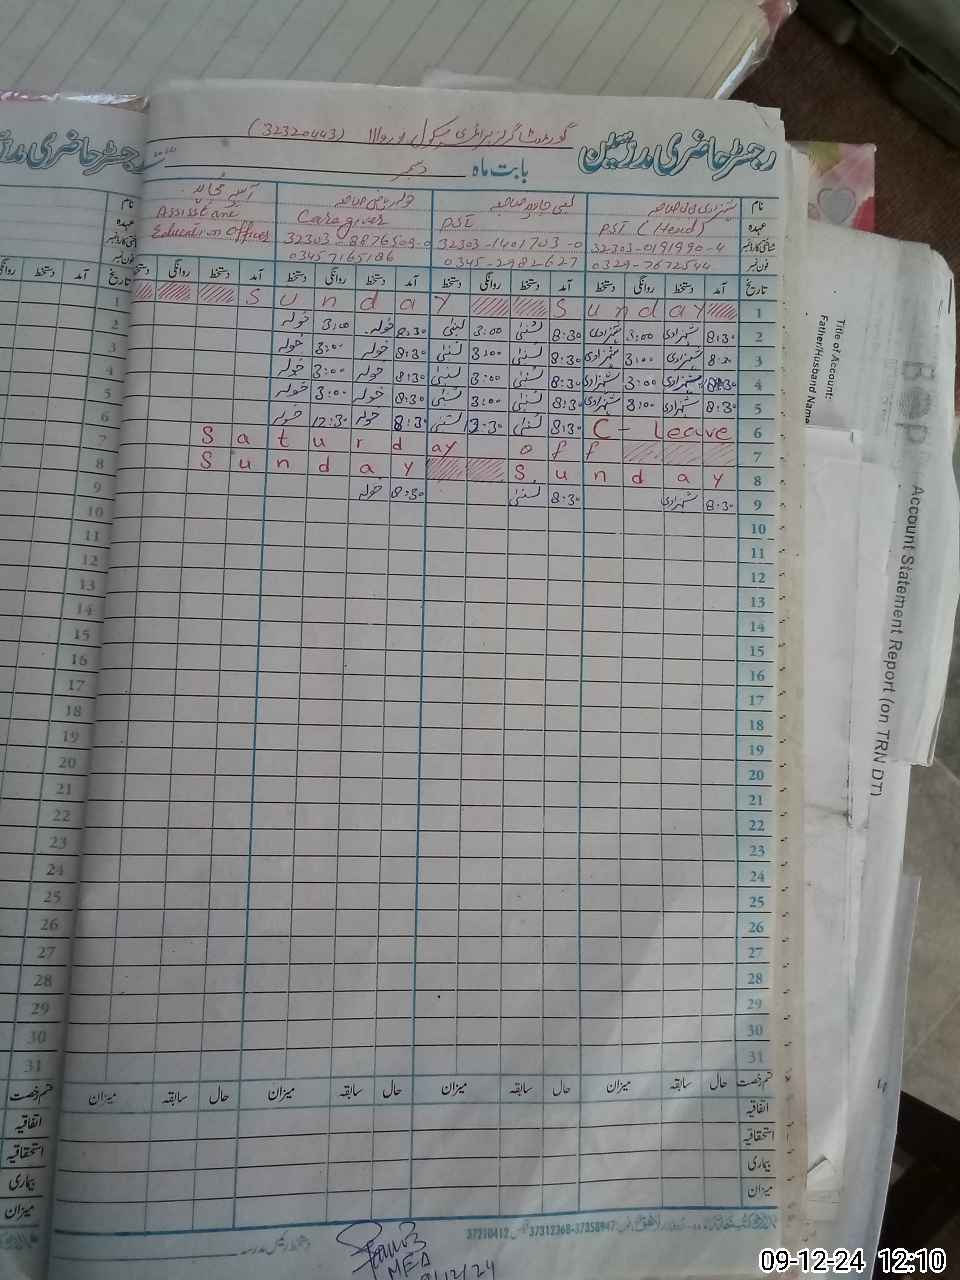 گورنمنٹ گرلز پرائمری سکول (32320443)
رجسٹر حاضری مدرسین
بابت ماہ دسمبر
نام
عہدہ PST (Head) PST Caregiver Assisstant Education Officer
شناختی کارڈ نمبر 32303-0191990-4 32303-1401703-0 32303-8876509-0
فون نمبر 0329-7672544 0345-2982627 03457165186
تاریخ آمد دستخط روانگی دستخط آمد دستخط روانگی دستخط آمد دستخط روانگی دستخط آمد دستخط روانگی دستخط
1 Sunday Sunday
2 8:30 شہزادی 3:00 شہزادی 8:30 لبنیٰ 3:00 لبنیٰ 8:30 خولہ 3:00 خولہ
3 8:30 شہزادی 3:00 شہزادی 8:30 لبنیٰ 3:00 لبنیٰ 8:30 خولہ 3:00 خولہ
4 8:30 شہزادی 3:00 شہزادی 8:30 لبنیٰ 3:00 لبنیٰ 8:30 خولہ 3:00 خولہ
5 8:30 شہزادی 3:00 شہزادی 8:30 لبنیٰ 3:00 لبنیٰ 8:30 خولہ 3:00 خولہ
6 C-Leave 8:30 لبنیٰ لبنیٰ 8:30 خولہ 12:30 خولہ
7 Saturday off
8 Sunday Sunday
9 8:30 شہزادی 8:30 لبنیٰ 8:30 خولہ
10
11
12
13
14
15
16
17
18
19
20
21
22
23
24
25
26
27
28
29
30
31
قسم رخصت حال سابقہ میزان حال سابقہ میزان حال سابقہ میزان حال سابقہ میزان
اتفاقیہ
استحقاقیہ
بیماری
میزان
37210412 37312368-37358947
دستخط رئیس مدرسہ
MEA
9/12/24
Title of Account:
Father/Husband Name
Account Statement Report (on TRN DT)
09-12-24 12:10